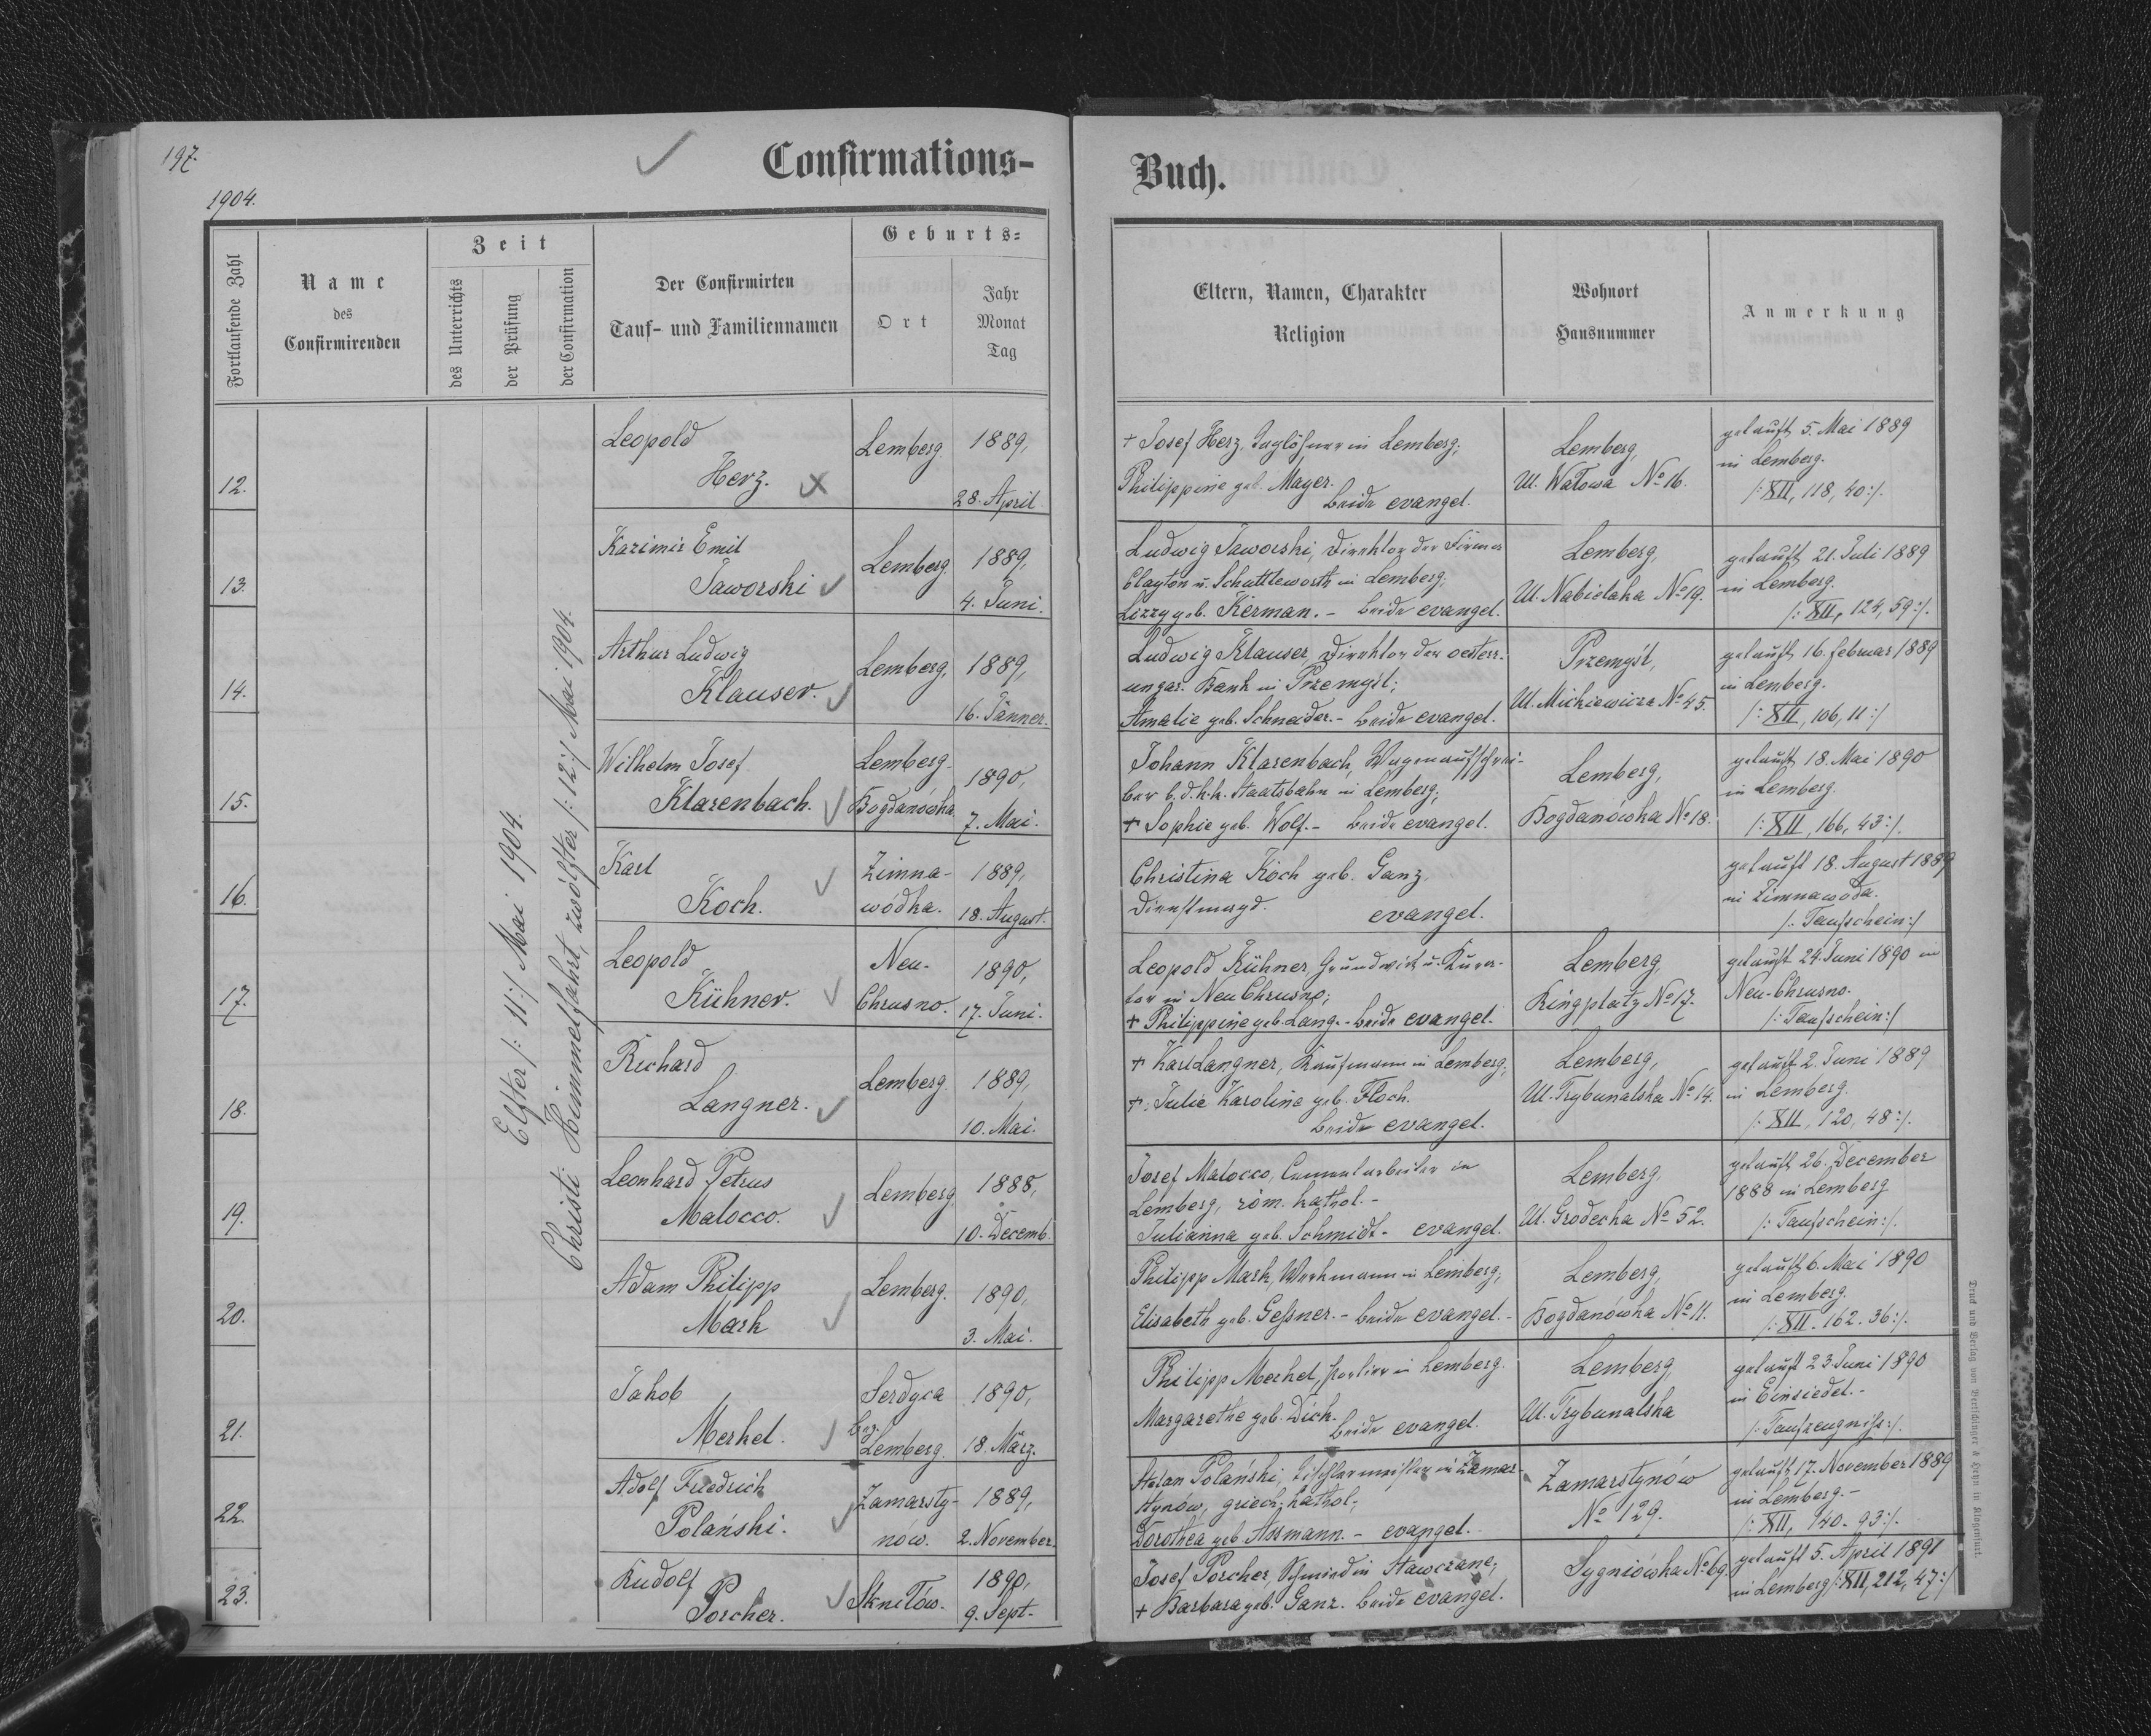 197.
Confirmations-
Buch.
1904.
Fortlaufende Zahl
Name
des
Confirmirenden
Zeit
des Unterrichts
der Prüfung
der Confirmation
Der Confirmirten
Tauf- und Familiennamen
Geburts-
Ort
Jahr
Monat
Tag
Eltern, Namen, Charakter
Religion
Wohnort
Hausnummer
Anmerkung
Elfter /: 11:/ Mai 1904.
Christi Himmelfahrt, zwölfter /: 12:/ Mai 1904.
12.
Leopold
Herz.
Lemberg.
1889,
28. April.
+ Josef Herz, Taglöhner in Lemberg;
Philippine geb. Mayer.
beide evangel.
Lemberg,
Ul. Wałowa No 16.
getauft 5. Mai 1889
in Lemberg.
/: XII, 118, 40:/.
13.
Kazimir Emil
Jaworski
Lemberg.
1889,
4. Juni.
Ludwig Jaworski, Direktor der Firma
Clayton u. Schuttleworth in Lemberg,
Lizzy geb. Kerman. - beide evangel.
Lemberg,
Ul. Nabielaka No 19.
getauft 21. Juli 1889
in Lemberg.
/: XII, 124, 59:/.
14.
Arthur Ludwig
Klauser.
Lemberg,
1889,
16. Jänner.
Ludwig Klauser, Direktor der oesterr.
ungar. Bank in Przemyśl;
Amalie geb. Schneider. - beide evangel.
Przemyśl,
Ul. Mickiewicza No 45.
getauft 16. Februar 1889
in Lemberg.
/: XII, 106, 11:/
15.
Wilhelm Josef
Klarenbach.
Lemberg-
Bogdanówka
1890,
7. Mai.
Johann Klarenbach, Wagenaufschrei-
ber b. d. k. k. Staatsbahn in Lemberg;
+ Sophie geb. Wolf. - beide evangel.
Lemberg,
Bogdanówka No 18.
getauft 18. Mai 1890
in Lemberg.
/: XII, 166, 43:/.
16.
Karl
Koch.
Zimna-
wódka.
1889,
18. August.
Christina Koch geb. Ganz,
Dienstmagd.
evangel.
getauft 18. August 1889
in Zimnawoda.
/: Taufschein:/
17.
Leopold
Kühner.
Neu-
Chrusno.
1890,
17. Juni.
Leopold Kühner, Grundwirt u. Kura-
tor in Neu Chrusno;
+ Philippine geb. Lang. - beide evangel.
Lemberg,
Ringplatz No 17.
getauft 24. Juni 1890 in
Neu-Chrusno.
/: Taufschein:/
18.
Richard
Langner.
Lemberg.
1889,
10. Mai.
+ Karl Langner, Kaufmann in Lemberg;
+. Julie Karoline geb. Floch.
beide evangel.
Lemberg,
Ul. Trybunalska No 14.
getauft 2. Juni 1889
in Lemberg.
/: XII, 120, 48:/.
19.
Leonhard Petrus
Malocco.
Lemberg.
1888,
10. Decemb.
Josef Malocco, Cementarbeiter in
Lemberg, röm. kathol. -
Julianna geb. Schmidt - evangel.
Lemberg,
Ul. Grodecka No 52.
getauft 26. December
1888 in Lemberg
/: Taufschein:/.
20.
Adam Philipp
Mark
Lemberg.
1890,
3. Mai.
Philipp Mark, Werkmann in Lemberg;
Elisabeth geb. Geßner. - beide evangel. -
Lemberg,
Bogdanówka No 11.
getauft 6. Mai 1890
in Lemberg.
/: XII. 162. 36:/.
21.
Jakob
Merkel.
Serdyca
bez.
Lemberg.
1890,
18. März.
Philipp Merkel, Portier in Lemberg.
Margarethe geb. Dick.
beide evangel.
Lemberg,
Ul. Trybunalska
getauft 23. Juni 1890
in Einsiedel. -
/: Taufzeugniß:/.
22.
Adolf Friedrich
Polański.
Zamarsty-
nów.
1889,
2. November.
Stefan Polański, Tischlermeister in Zamar-
stynów, griech. kathol.,
Dorothea geb. Assmann. - evangel.
Zamarstynów
No 129.
getauft 17. November 1889
in Lemberg. -
/: XII, 140. 93:/.
23.
Rudolf
Porcher.
Skniłów.
1890,
9. Sept.
Josef Porcher, Schmied in Stawczane;
+ Barbara geb. Ganz. beide evangel.
Sygniówka No 69.
getauft 5. April 1891
in Lemberg /: XII, 212, 47:/